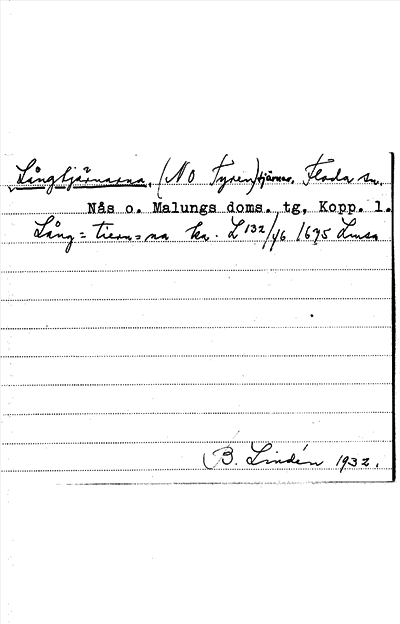 Långtjärnarna, (NO Tyren) tjärnar, Floda sn,
Nås o. Malungs doms. tg, Kopp. l.
Lång=tiern=na ka. L 132/46 1675 Lmsa
B. Lindén 1932.